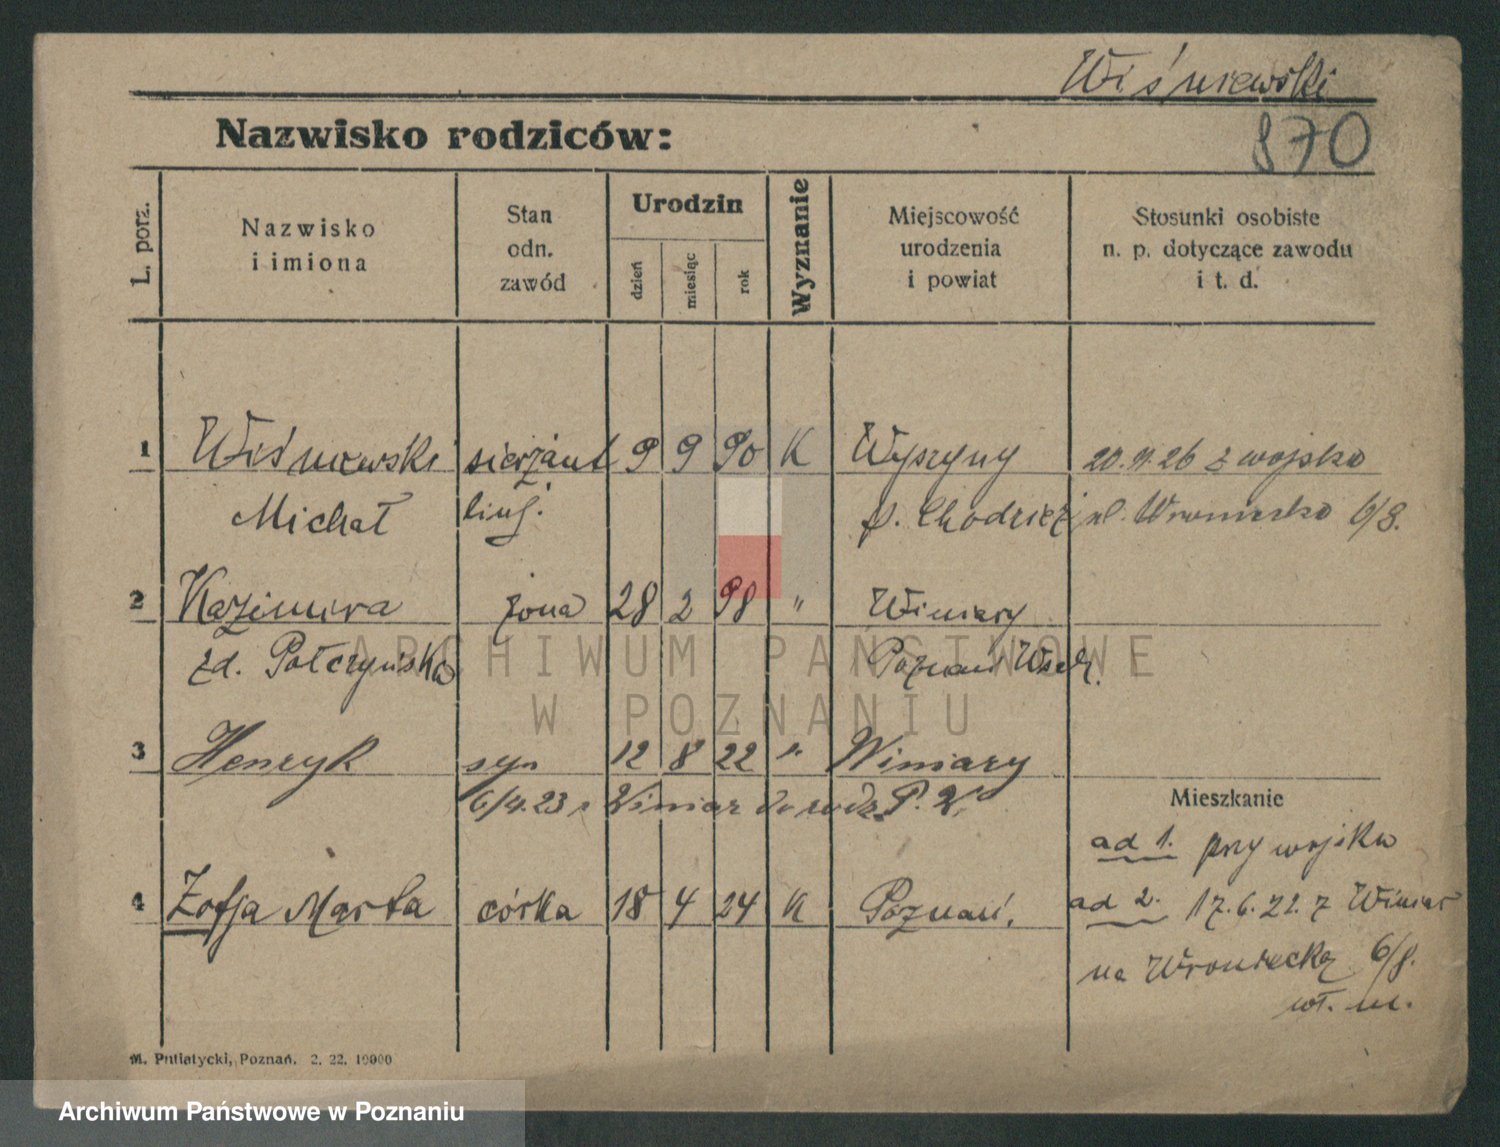 Wiśniewski
870
Nazwisko rodziców:
L. porz.
Nazwisko
i imiona
Stan
odn.
zawód
Urodzin
dzień
miesiąc
rok
Wyznanie
Miejscowość
urodzenia
i powiat
Stosunki osobiste
n. p. dotyczące zawodu
i t. d.
1 Wiśniewski sierżant 9 9 90 K Wyszyny 20. 26 z wojska
Michał p. Chodzież ul. Wroniecka 6/8.
2 Kazimira żona 28 2 98 " Winiary
zd. Połczyńska Poznań Wsch.
3 Henryk syn 12 8 22 " Winiary
6/4.23 z Winiar do rodz.
Mieszkanie
ad 1. przy wojsku
4 Zofja Marta córka 18 4 24 K Poznań.
ad 2. 17.6.22. z Winiar
na Wroniecką 6/8.
wł. m.
M. Putiatycki, Poznań. 2. 22. 10000
ARCHIWUM PAŃSTWOWE
W POZNANIU
Archiwum Państwowe w Poznaniu